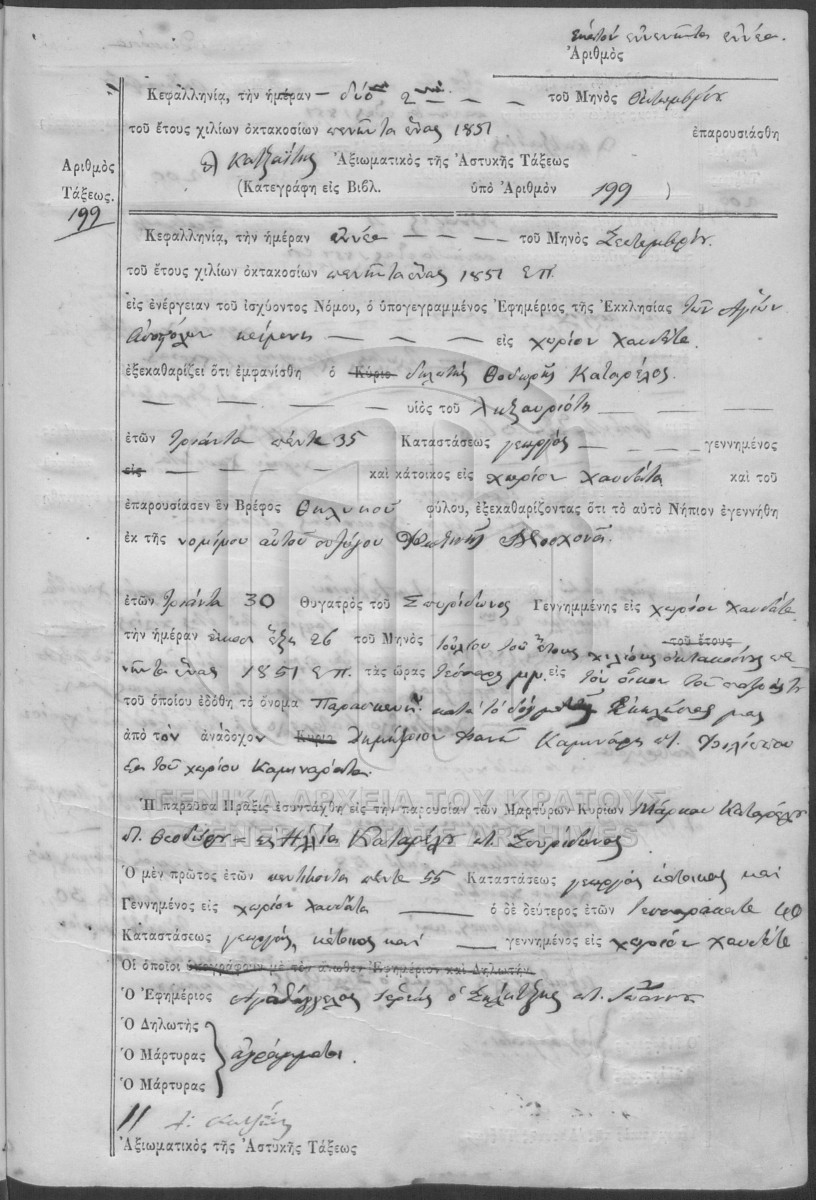 ἑκατόν ἐννενῆντα ἐννέα.
Ἀριθμὸς
Κεφαλληνίᾳ, τὴν ἡμέραν — δύο 2 — — — τοῦ Μηνὸς Ὀκτωμβρίου
τοῦ ἔτους χιλίων ὀκτακοσίων πενῆντα ἕνας 1851 ἐπαρουσιάσθη
Ἀξιωματικὸς τῆς Ἀστυκῆς Τάξεως
(Κατεγράφη εἰς Βιβλ. ὑπὸ Ἀριθμὸν 199 )
Ἀριθμὸς
Τάξεως.
199
Κεφαλληνίᾳ, τὴν ἡμέραν ἐννέα — — — — τοῦ Μηνὸς Σεπτεμβρίου.
τοῦ ἔτους χιλίων ὀκτακοσίων πενῆντα ἕνας 1851 Ε.Π.
εἰς ἐνέργειαν τοῦ ἰσχύοντος Νόμου, ὁ ὑπογεγραμμένος Ἐφημέριος τῆς Ἐκκλησίας τῶν Ἁγίων
Ἀποστόλων κείμενης — — — — εἰς χωρίον Χαυδάτα.
ἐξεκαθαρίζει ὅτι ἐμφανίσθη ὁ Κύριο δηλωτής Θοδωρῆς Καταρέλος.
— — — — υἱὸς τοῦ Ληξουριότη — — — —
ἐτῶν τριάντα πέντε 35 Καταστάσεως γεωργός — — — — γεννημένος
εἰς — — — — καὶ κάτοικος εἰς χωρίον Χαυδάτα καὶ τοῦ
ἐπαρουσίασεν ἓν Βρέφος θηλυκοῦ φύλου, ἐξεκαθαρίζοντας ὅτι τὸ αὐτὸ Νήπιον ἐγεννήθη
ἐκ τῆς νομίμου αὐτοῦ συζύγου Φωτεινῆς Μοσχονᾶ.
ἐτῶν τριάντα 30 Θυγατρὸς τοῦ Σπυρίδωνος Γεννημμένης εἰς χωρίον Χαυδάτα.
τὴν ἡμέραν εἴκοσι ἕξη 26 τοῦ Μηνὸς Ἰουλίου τοῦ ἔτους χιλίους ὀκτακοσίους πε- τοῦ ἔτους
νῆντα ἕνας 1851 Ε.Π. τὰς ὥρας τέσσαρες μ.μ. εἰς τὸν οἶκον τοῦ πατρός τη
τοῦ ὁποίου ἐδόθη τὸ ὄνομα Παρασκευή κατὰ τὸ δόγμα τῆς Ἐκκλησίας μας
ἀπὸ τὸν ἀνάδοχον Κύριο Δημήτριον Φανῆ Καμινάρη
ἐκ τοῦ χωρίου Καμιναράτα.
Ἡ παροῦσα Πρᾶξις ἐσυντάχθη εἰς τὴν παρουσίαν τῶν Μαρτύρων Κυρίων Μάρκου Καταρέλου
π. Θεοδώρου — ἐξ Ηλία Καταρέλου π. Σπυρίδωνος
Ὁ μὲν πρῶτος ἐτῶν πεντήκοντα πέντε 55 Καταστάσεως γεωργός κάτοικος καί
Γεννημένος εἰς χωρίον Χαυδάτα — ὁ δὲ δεύτερος ἐτῶν τεσσαράκοντα 40
Καταστάσεως γεωργός, κάτοικος καί — γεννημένος εἰς χωρίον Χαυδάτα
Οἱ ὁποῖοι ὑπογράφουν μὲ τὸν ἄνωθεν Ἐφημέριον καὶ Δηλωτήν.
Ὁ Ἐφημέριος Ἀγαθάγγελος ἱερεύς ὁ π. Ἰωάννου
Ὁ Δηλωτὴς
Ὁ Μάρτυρας ἀγράμματοι.
Ὁ Μάρτυρας
Ἀξιωματικὸς τῆς Ἀστυκῆς Τάξεως
ΓΕΝΙΚΑ ΑΡΧΕΙΑ ΤΟΥ ΚΡΑΤΟΥΣ
GENERAL STATE ARCHIVES